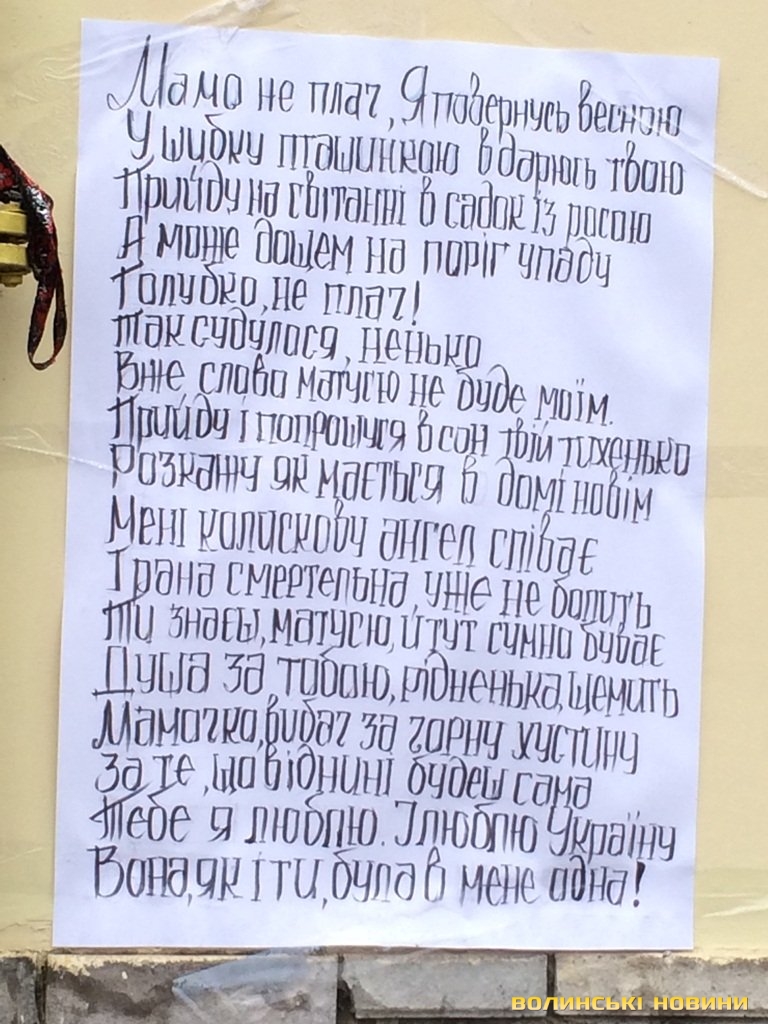 Мамо не плач, Я повернусь весною
У шибку пташинкою вдарюсь твою
Прийду на світанні в садок із росою
А може дощем на поріг упаду
Голубко, не плач!
Так судулося, ненько
Вже слово матусю не буде моїм.
Прийду і попрошуся в сон твій тихенько
Розкажу як мається в домі новім
Мені колискову ангел співає
І рана смертельна, уже не болить
Ти знаєш, матусю, й тут сумно буває
Душа за тобою, рідненька, щемить
Мамочко, вибач за чорну хустину
За те, що віднині будеш сама
Тебе я люблю. І люблю Україну
Вона, як і ти, була в мене одна!
ВОЛИНСЬКІ НОВИНИ